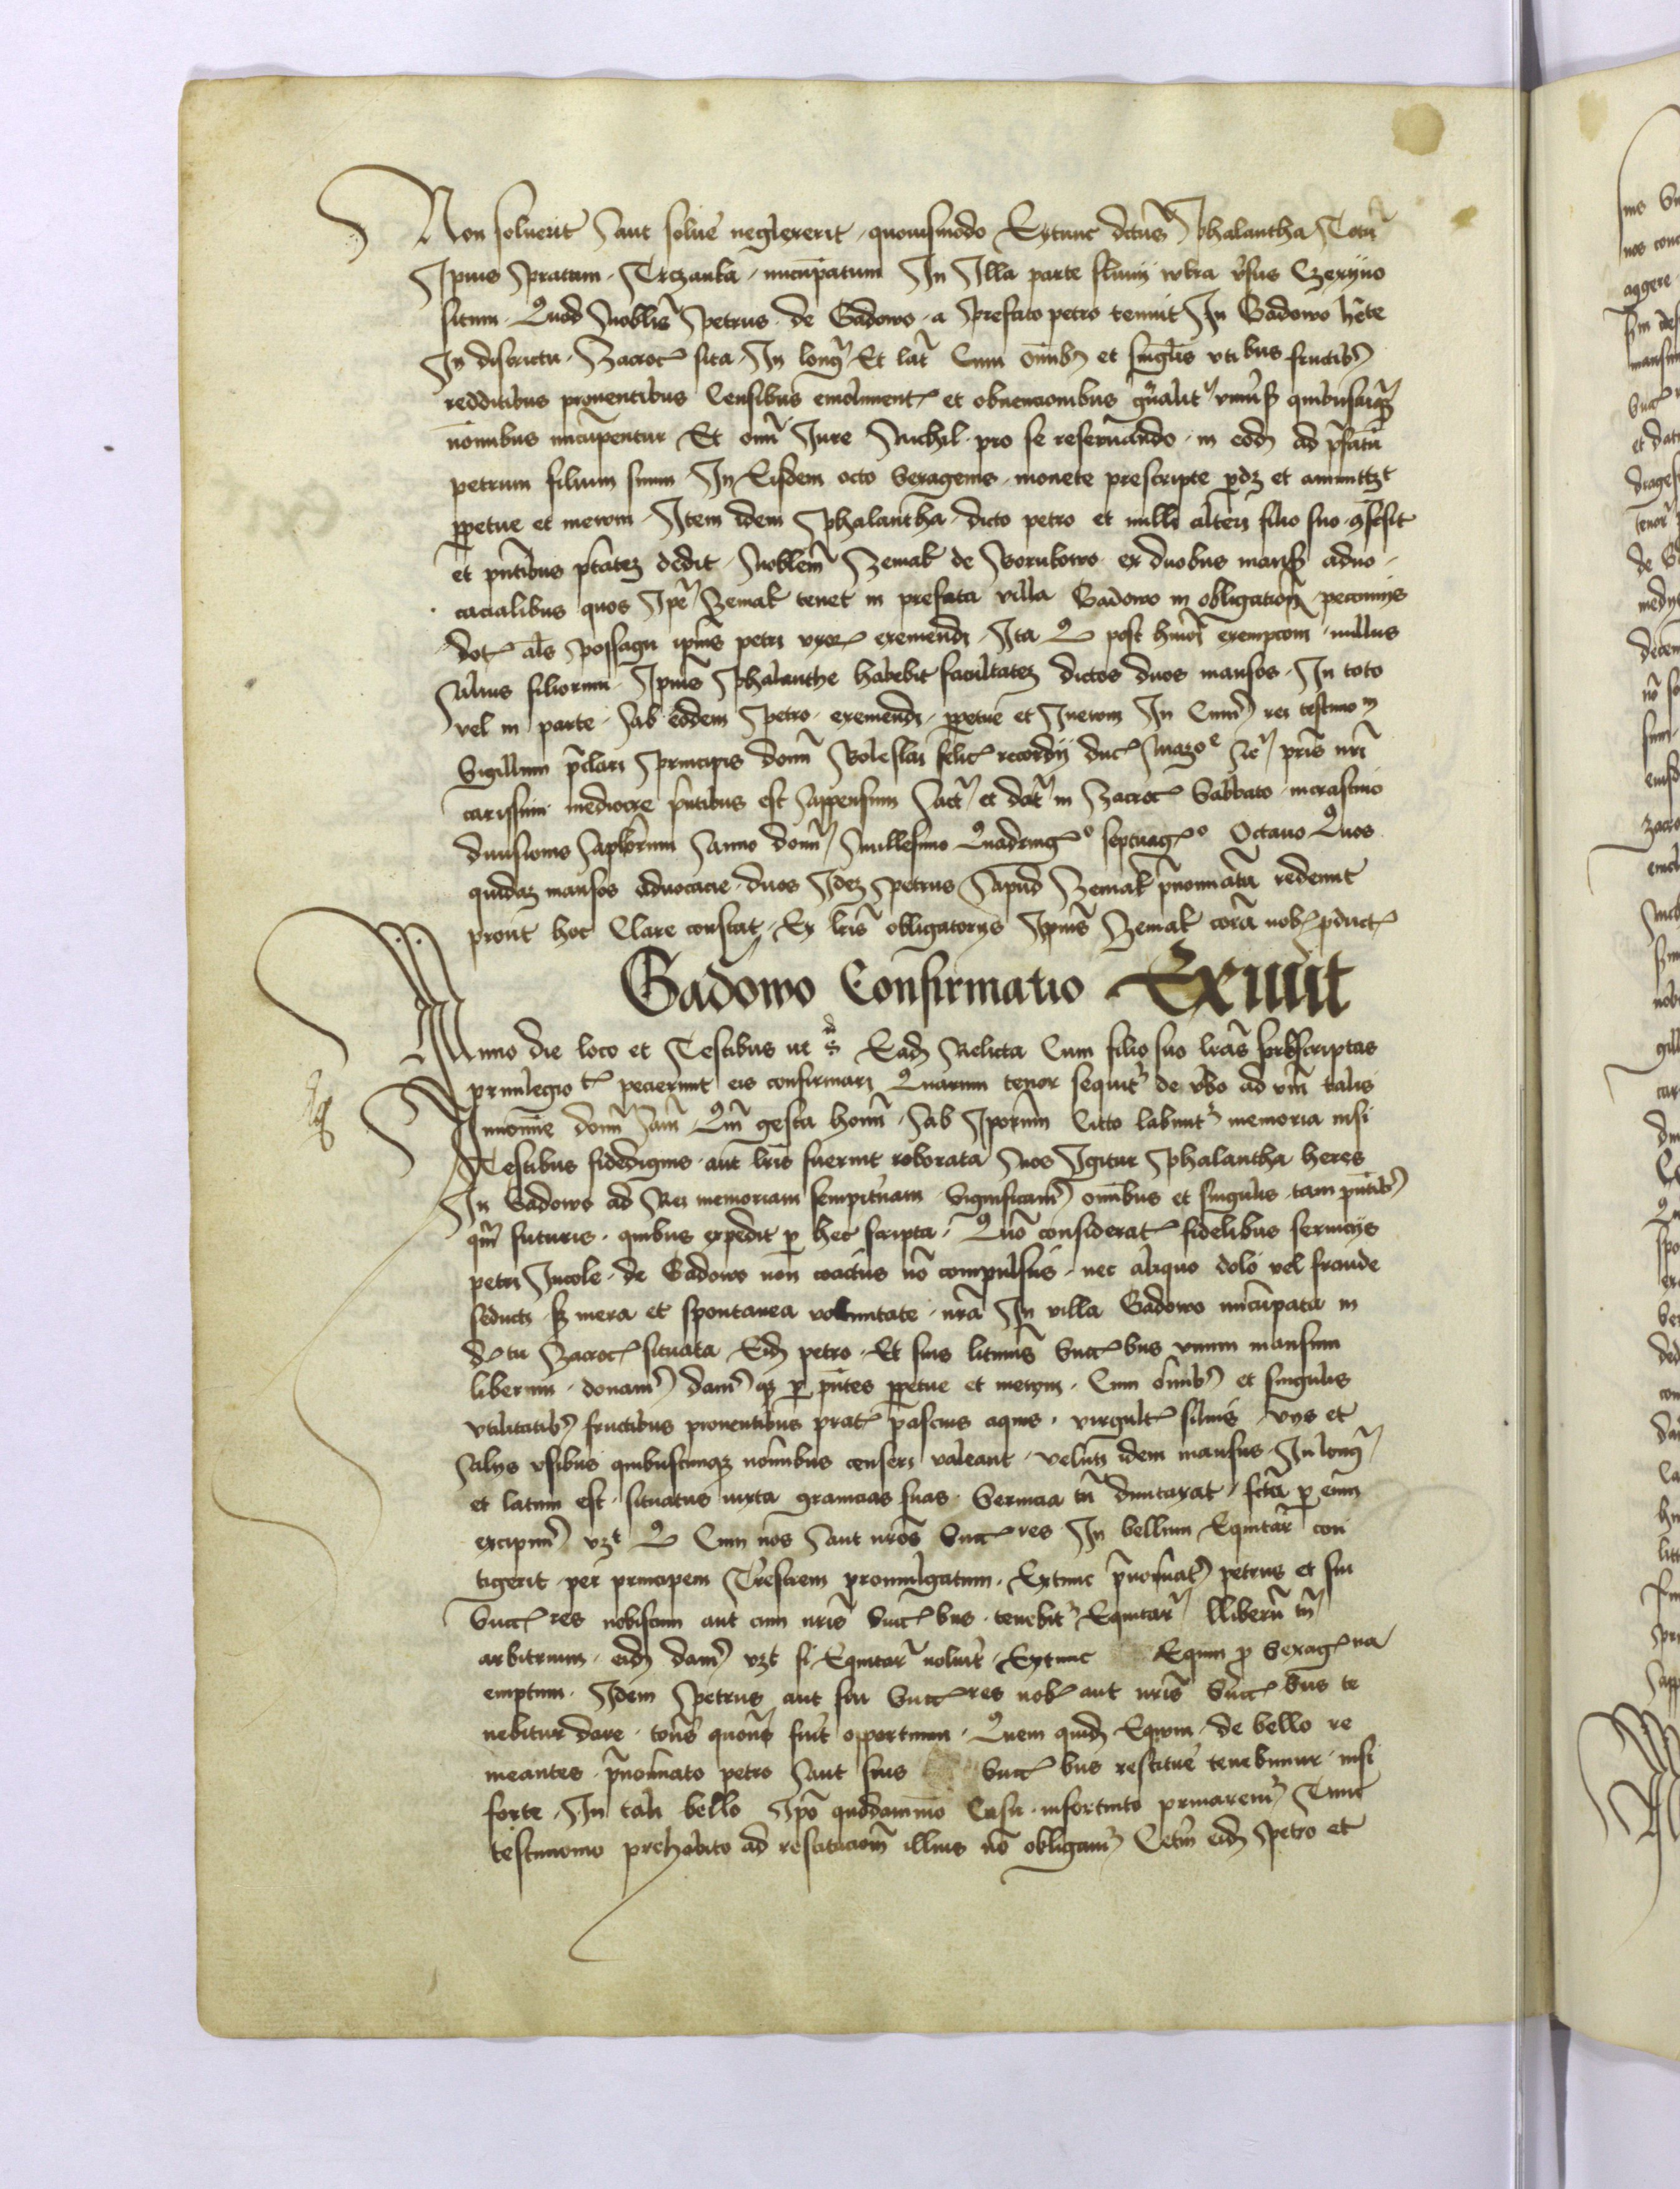 Non soluerit Aut soluē neglexerit quouismodo Extunc dictus Phalantha Totū
Ipius Pratum Trczanka nūcupatum In Illa parte fluuij wkra v̄sus Czexijno
situm Quod Nobilis Petrus de Gadowo a Prefato petro tenuit In Gadowo
In districtu Zacroc sita In long Et lat Cum om̄ibȝ et singlis vti bus fructibȝ
redditibus prouentibus Censibus emolument et obuencionibus gn̄alit vniūsȝ quibuscūqȝ
nomībus nūcupentur Et om̄i Iure Nichil pro se reseruando in eodȝ ad p̄fatū
petrum filium suum In Eisdem octo sexagenis monete prescripte pdȝ et amittȝt
ppetue et in ewm Item idem Phalantha dicto petro et nulli alteri filio suo
et pn̄tibus ptatēȝ dedit Nobilem Zemak de Borukowo ex duobus mansȝ aduo
cacialibus quos Ipē Zemak tenet in prefata villa Gadowo in obligation pecunijs
dot als possagu ipius petri vxor exemendi Ita Q post exempcōm nullus
Alius filiorum Ipius Phalanthe habebit facultateȝ dictos duos mansos In toto
vel in parte Ab eodem Petro exemendi ppetue et Inewm In Cuius rei testimo
Sigillum p̄clari Principis domī Boleslai felic recordij duc Mazo ꝛc pris nrī
carissimi mediocre pn̄tibus est Appensum Act et dat in Zacroc Sabbato in crastino
diuisionis Aplorum Anno domī Millesimo Quadring⁰ septuag⁰ Octauo Quos
quidaȝ mansos aduocacie duos Ideȝ Petrus Apud Zemak p̄nomīatū redemit
prout hoc Clare constat Ex lrīs obligatorijs Ipius Zemak corā nob pduct
Gadowo Confirmatio Exiuit
Anno die loco et Testibus ut s Eadȝ Relicta Cum filio suo lrās prescriptas
priuilegio t pecierunt eis confirmari Quarum tenor sequit̄ de v̄bo ad v̄m talis
In noīe domī Am̄ Qm̄ gesta homī Ab Iporum Citto labunt̄ memoria nisi
Testibus fidedignis aut lrīs fuerint roborata Nos Igitur Phalantha heres
In Gadowo ad Rei memoriam sempit̄nam Significam̄ om̄ibus et singulis tam pn̄tibȝ
qm̄ futuris quibus expedit p hec scripta Quō considerat fidelibus seruicijs
petri Incole de Gadowo non coactus nō compulsus nec aliquo dolo vel fraude
seduct sȝ mera et spontanea voluntate nrā In villa Gadowo nūcupata in
d tu Zacroc situata Eidȝ petro Et suis litimis Succ bus vnum mansum
liberum donam̄ dam̄ qȝ p pn̄tes ppetue et in ewm Cum om̄ibȝ et singulis
vtilitatibȝ fructibus prouentibus prat pascuis aquis virgult siluis vijs et
Alijs vsibus quibuscunqȝ nomībus censeri valeant veluti idem mansus In long
et latum est situatus iuxta granicias suas Seruicia tn̄ duntaxat sctā p eum
excipim̄ vȝt Q Cum nos Aut nrōs Succ res In bellum Equitar̄ con
tigerit per principem Terrestrem promulgatum Extunc p̄nomīat̄ petrus et sui
Succ res nobiscum aut cum nrīs Succ bus tenebit̄ Equitar̄ lliberū tn̄
arbitrium eidȝ dam̄ vȝt si Equitar̄ noluit̄ Extunc Equm p Sexag na
emptum Idem Petrus aut sui Succ res nob aut nrīs Succ bus te
nebitur dare tociēs quociēs fuit̄ opportunum Quem quidȝ Equm de bello re
meantes p̄nomīato petro Aut suis Succ bus restituē tenebimur nisi
forte In tali bello Ipō quodammō Casu infortuito priuarem̄ Tunc
testimonio prehabito ad restitucioem illius nō obligam̄ Cetm̄ eidȝ Petro et